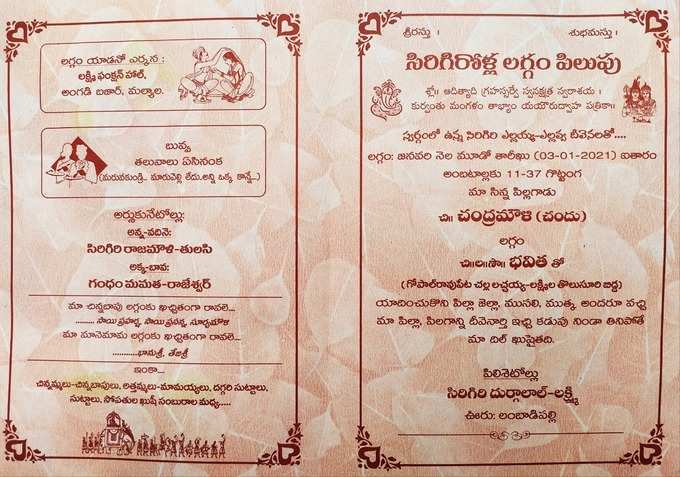 లగ్గం యాడనో ఎర్కన :
లక్ష్మి ఫంక్షన్ హాల్,
అంగడి బజార్, మల్యాల.
బువ్వ
తలువాలు ఏసినంక
(మరువకుండ్రి.. మారుచెల్లి లేదు.అన్ని ఒక్క కాన్నే...)
అర్సుకునేటోల్లు:
అన్న-వదినె:
సిరిగిరి రాజమౌళి-తులసి
అక్క-బావ:
గంధం మమత-రాజేశ్వర్
మా చిన్నబాపు లగ్గంకు ఖచ్చితంగా రావలె...
......... సాయి ప్రహర్ష, సాయి ప్రవర్ష, సూర్యమౌళి
మా మానెమామ లగ్గంకు ఖచ్చితంగా రావలె...
............భానుశ్రీ, తేజశ్రీ
ఇంకా...
చిన్నమ్మలు-చిన్నబాపులు, అత్తమ్మలు-మామయ్యలు, దగ్గరి సుట్టాలు,
సుట్టాలు, సోపతుల ఖుషీ సంబురాల మధ్య.....
శ్రీరస్తు । శుభమస్తు ।
సిరిగిరోళ్ల లగ్గం పిలుపు
శ్లో॥ ఆదిత్యాది గ్రహస్సర్వే స్వనక్షత్ర స్వరాశయ ।
కుర్వంతు మంగళం తాభ్యాం యయోరుద్వాహ పత్రికా॥
స్వర్గంలో ఉన్న సిరిగిరి ఎల్లయ్య-ఎల్లవ్వ దీవెనలతో....
లగ్గం: జనవరి నెల మూడో తారీఖు (03-01-2021) ఐతారం
అంబటాల్లకు 11-37 గొట్టంగ
మా సిన్న పిల్లగాడు
చి॥ చంద్రమౌళి (చందు)
లగ్గం
చి॥ల॥సౌ॥ భవిత తో
(గోపాల్‌రావుపేట చల్ల లచ్చయ్య-లక్ష్మిల తొలుసూరి బిడ్డ)
యాదించుకొని పిల్లా జెల్లా, ముసలి, ముత్క అందరూ వచ్చి
మా పిల్లా, పిలగాన్ని దీవెనార్తి ఇచ్చి కడుపు నిండా తినిపోతే
మా దిల్ ఖుషైతది.
పిలిశెటోల్లు
సిరిగిరి దుర్గాలాల్-లక్ష్మి
ఊరు: లంబాడిపల్లి